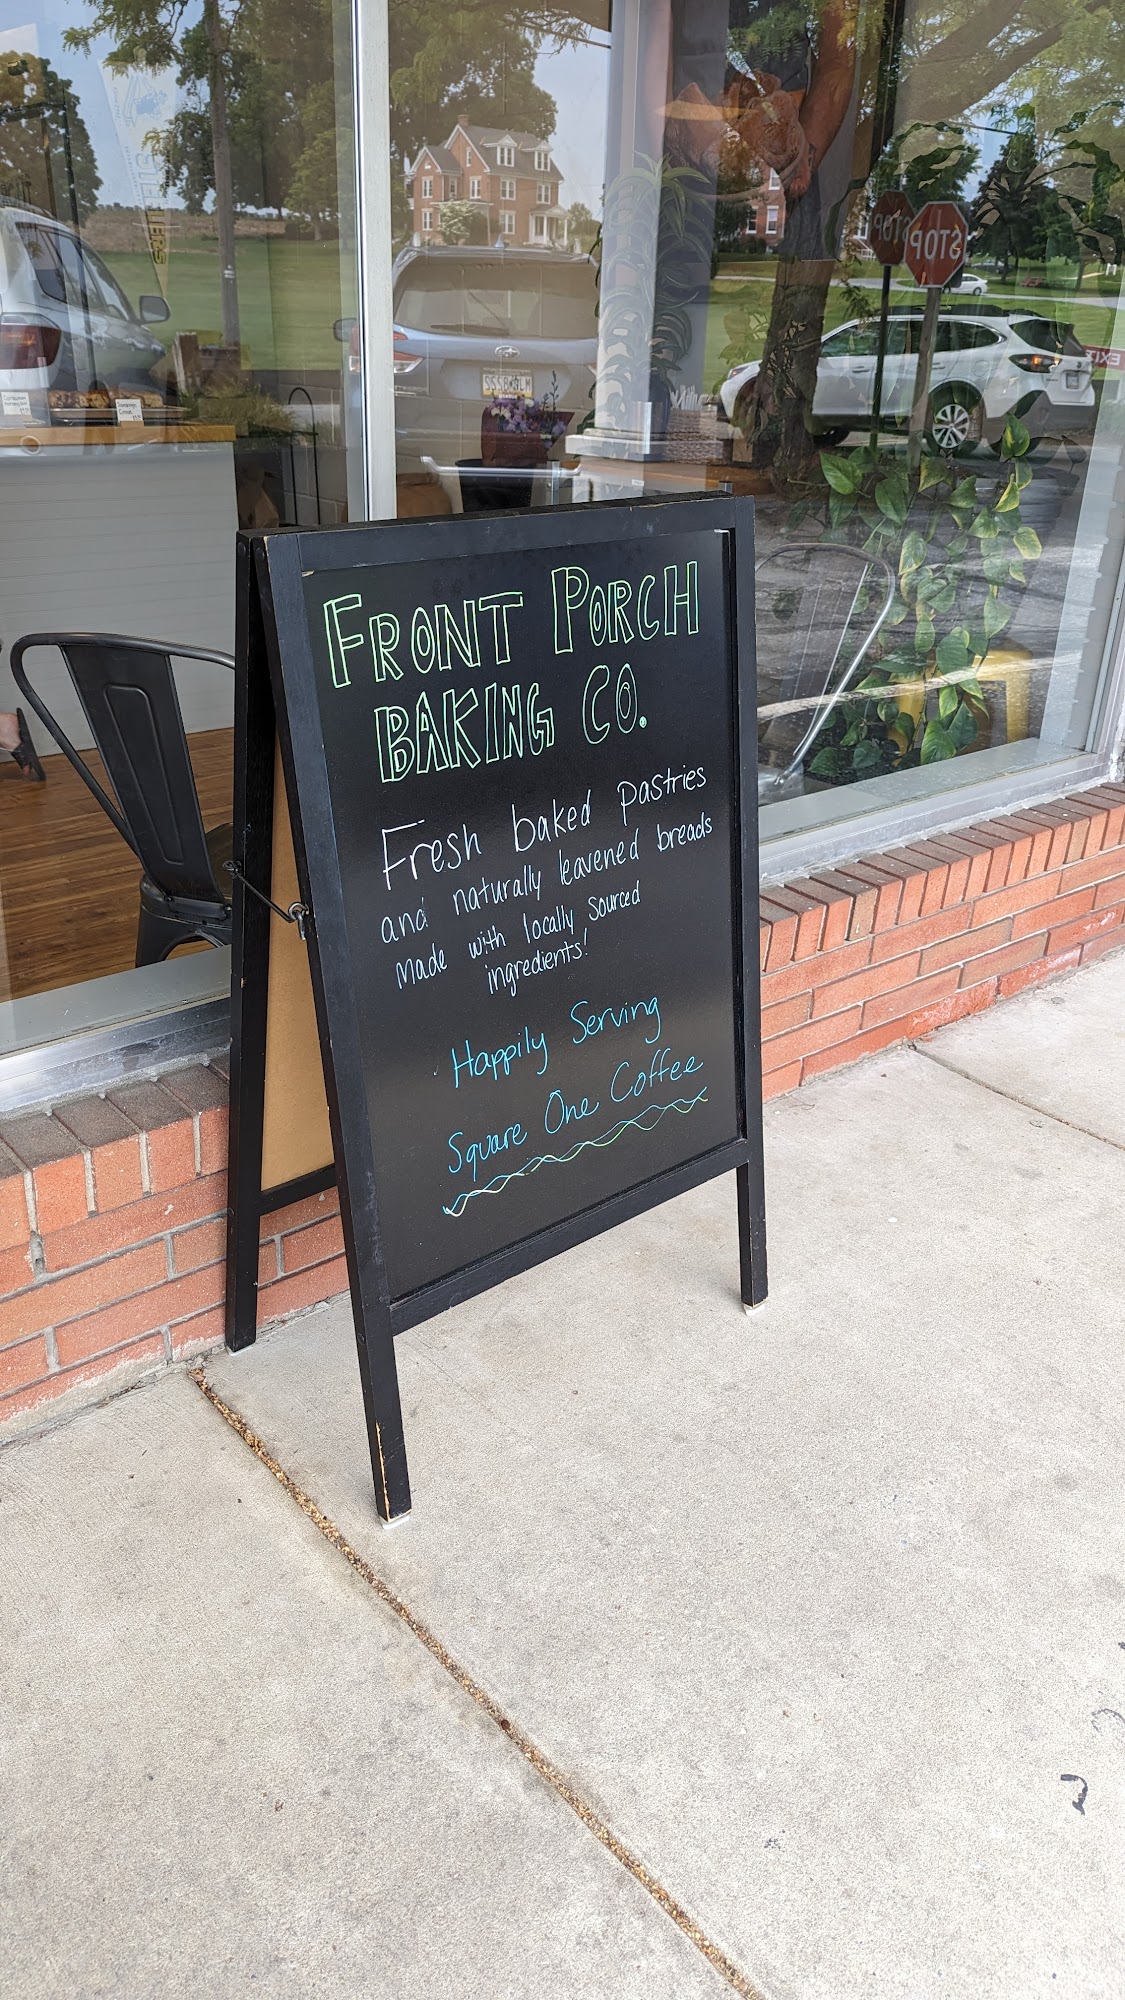 FRONT PORCH
BAKING CO.
Fresh baked pastries
and naturally leavened breads
made with locally sourced
ingredients!
Happily Serving
Square One Coffee
STOP
STOP
EXIT